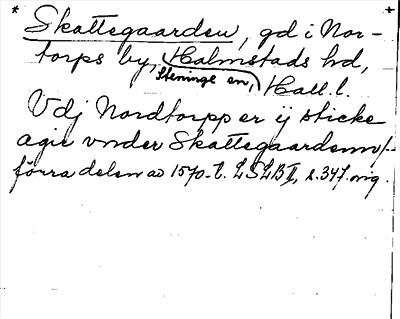 * Skattegaarden, gd i Nor-
torps by, Halmstads hd,
Steninge sn, Hall. l.
Vdj Nordtorpp er ij sticke
agre vnder Skattegaardenn /-
förra delen av 1570-t. LSLB II, s. 347. orig.